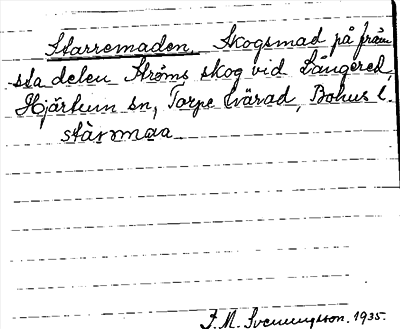 Starremaden, Skogsmad på främ
sta delen Ströms skog vid Långered,
Hjärtum sn, Torpe härad, Bohus l.
starmaa
F. M. Svenningsson. 1935.